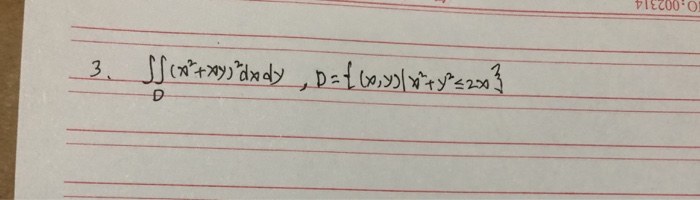 3. ∬(x²+xy)²dxdy , D={(x,y)|x²+y²≤2x}
D